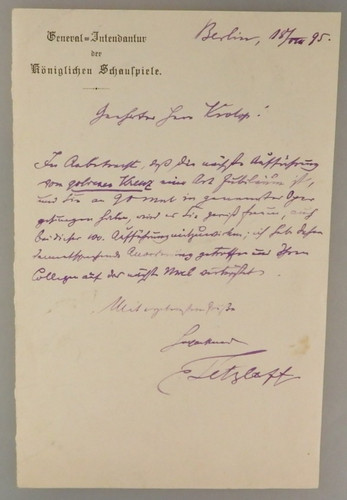 General-Intendantur
der
Königlichen Schauspiele.
Berlin, 18/VIII 95.
Geehrter Herr Krolop!
In Anbetracht, daß die nächste Aufführung
vom goldenen Kreuz eine Art Jubiläum ist,
und Sie an 90 Mal in genannter Oper
gesungen haben, wird es Sie gewiß freuen, auch
bei dieser 100. Aufführung mitzuwirken; ich habe daher
dementsprechende Anordnung getroffen und Ihren
Collegen auf das nächste Mal vertröstet.
Mit ergebenstem Gruße
Tetzlaff